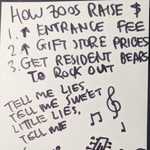 HOW ZOOS RAISE $
1. ↑ ENTRANCE FEE
2. ↑ GIFT STORE PRICES
3. GET RESIDENT BEARS
TO ROCK OUT
TELL ME LIES
TELL ME SWEET
LITTLE LIES,
TELL ME